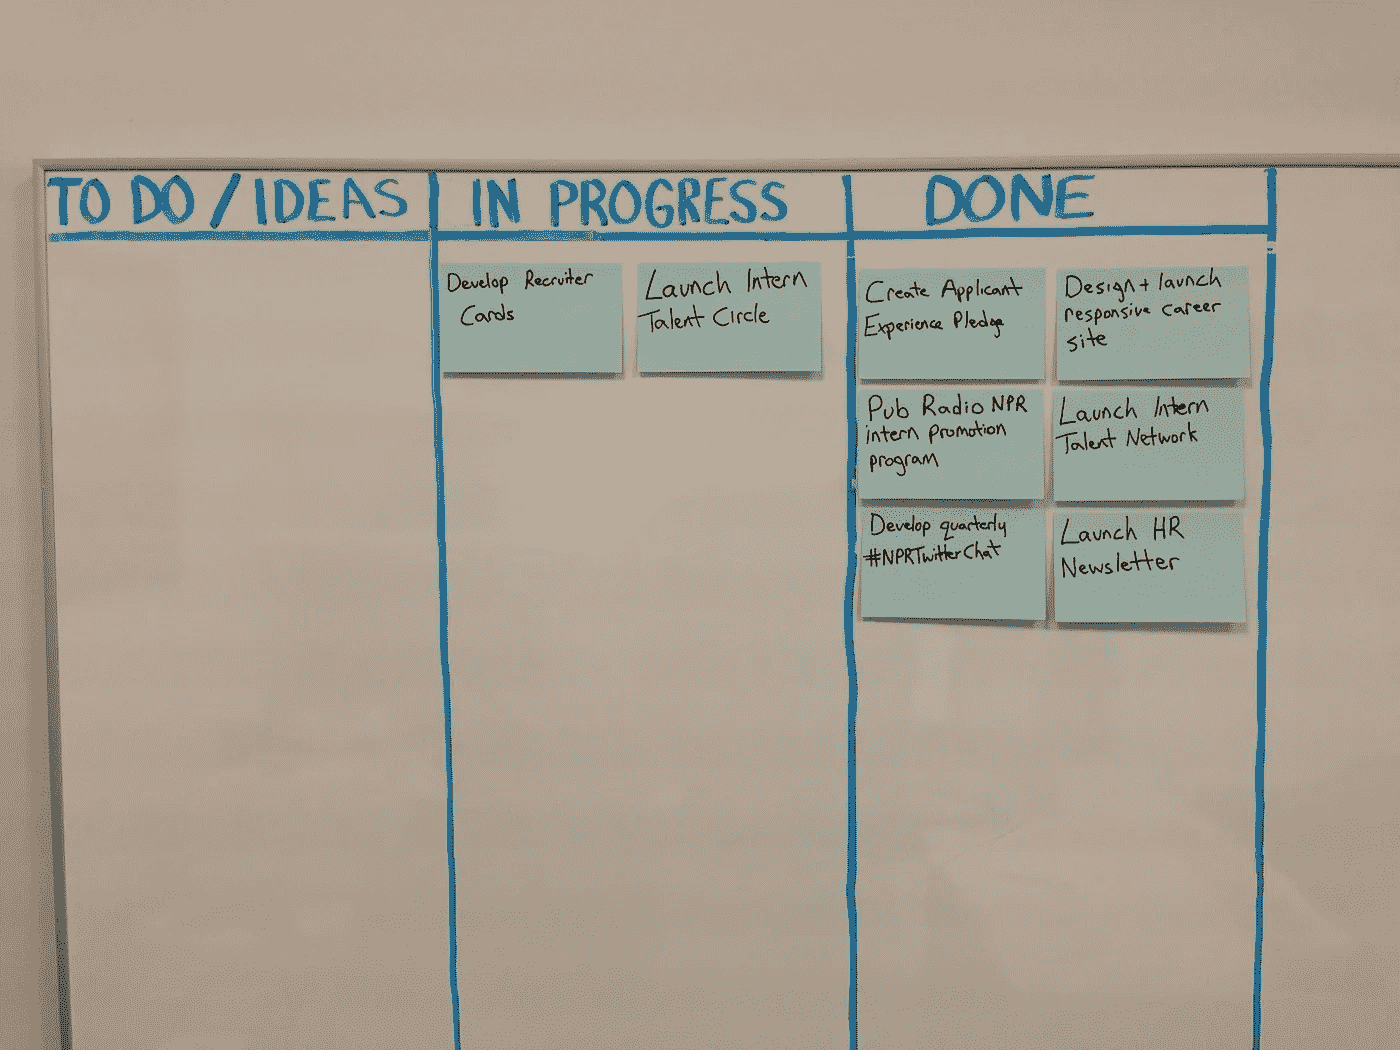 TO DO / IDEAS
IN PROGRESS
DONE
Develop Recruiter
Cards
Launch Intern
Talent Circle
Create Applicant
Experience Pledge
Design + launch
responsive career
site
Pub Radio NPR
intern promotion
program
Launch Intern
Talent Network
Develop quarterly
#NPRTwitterChat
Launch HR
Newsletter